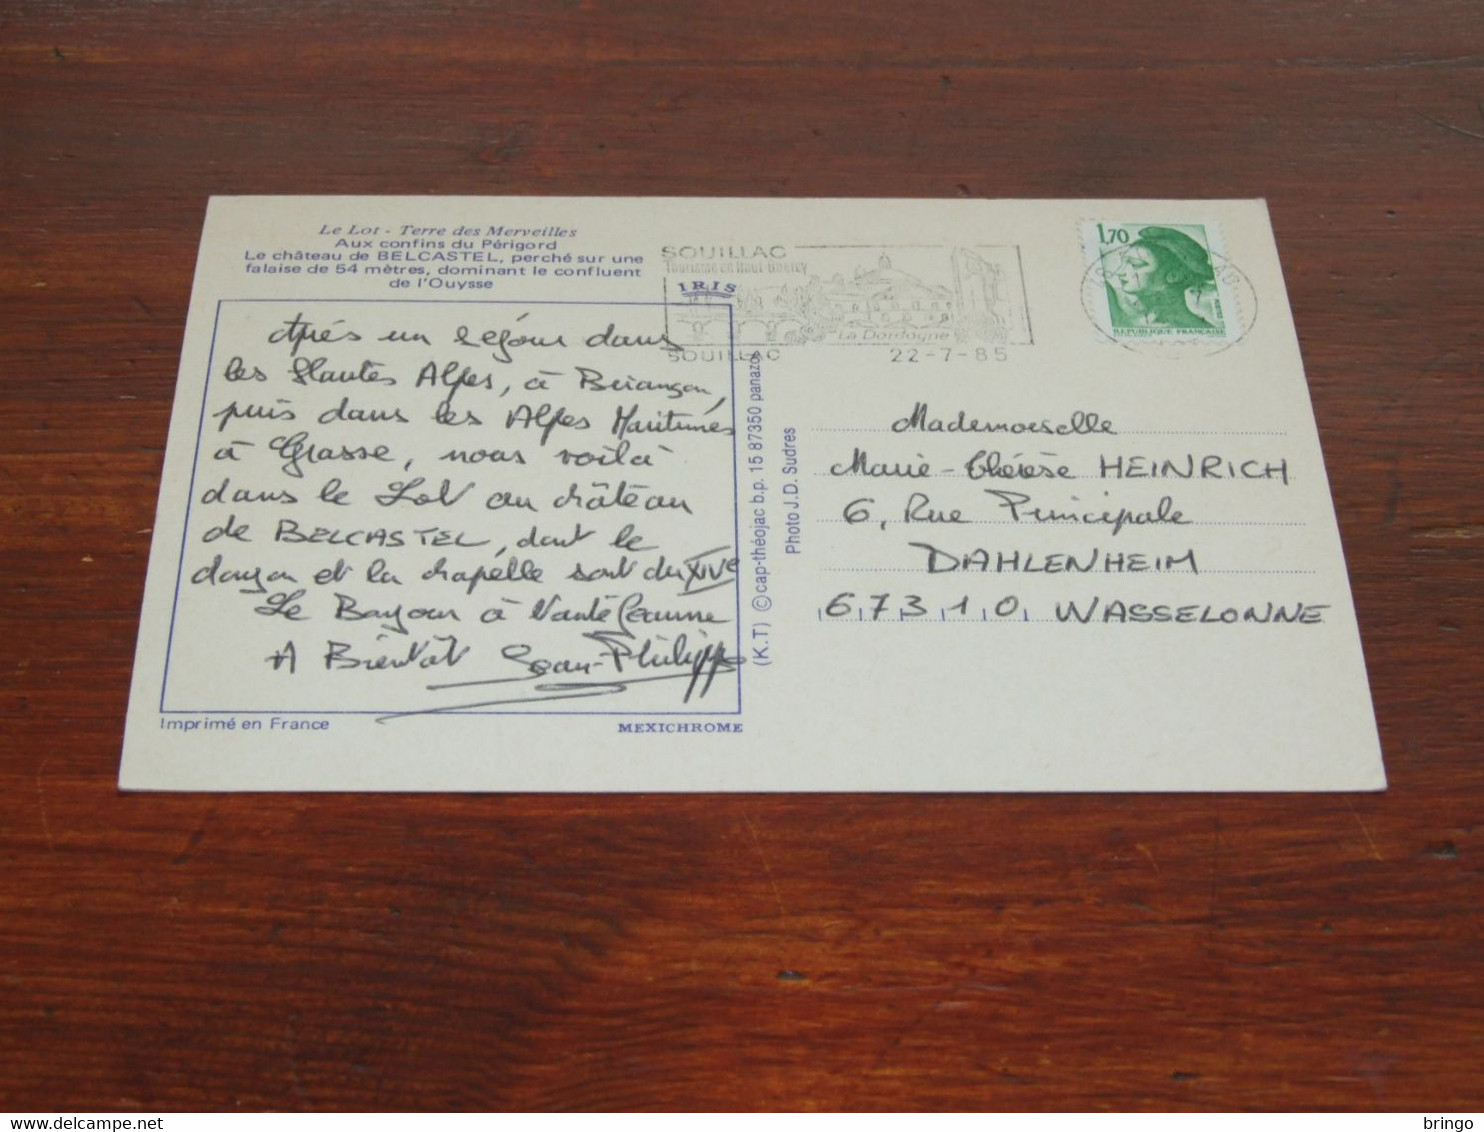 Le Lot - Terre des Merveilles
Aux confins du Périgord
Le château de BELCASTEL, perché sur une
falaise de 54 mètres, dominant le confluent
de l'Ouysse
IRIS
Après un séjour dans
les Hautes Alpes, à Briançon,
puis dans les Alpes Maritimes
à Grasse, nous voilà
dans le Lot au château
de BELCASTEL, dont le
donjon et la chapelle sont du XIVe
Le Bonjour à Tante Jeanne
A Bientôt Jean-Philippe
Imprimé en France
MEXICHROME
(K.T) © cap-théojac b.p. 15 87350 panazol
Photo J.D. Sudres
SOUILLAC
Tourisme en Haut-Quercy
La Dordogne
SOUILLAC
22-7-85
1,70
REPUBLIQUE FRANÇAISE
Mademoiselle
Marie-Thérèse HEINRICH
6, Rue Principale
DAHLENHEIM
67310 WASSELONNE
delcampe.net
bringo